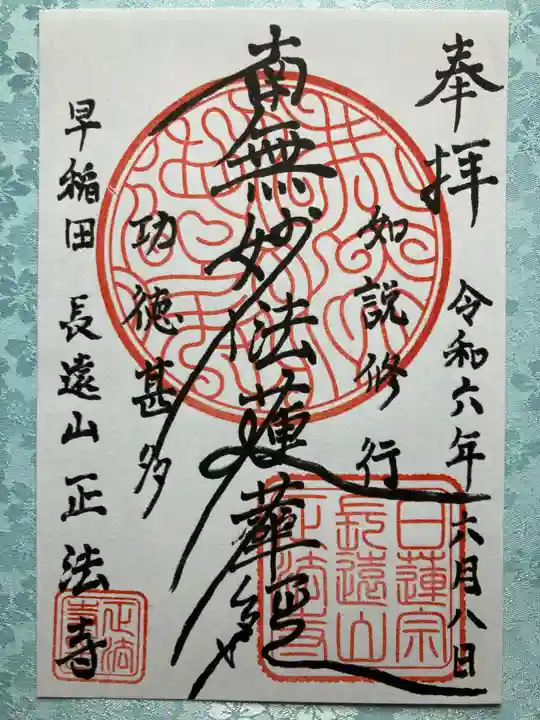 奉拝
令和六年六月八日
如説修行
南無妙法蓮華経
功徳甚多
早稲田 長遠山 正法寺
日蓮宗
長遠山
正法寺
正法